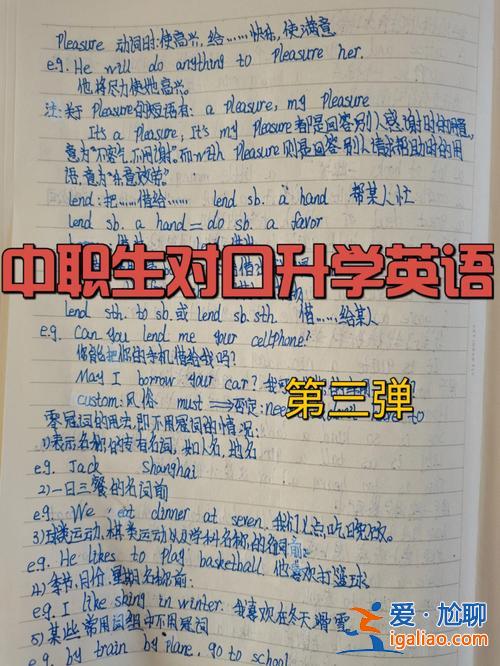 Pleasure 动词时:使高兴,给……快乐,使满意
e.g. He will do anything to Pleasure her.
他将尽力使她高兴。
注:关于Pleasure的短语有: a Pleasure, my Pleasure
It's a Pleasure, It's my Pleasure都是回答别人感谢时的用语,
意为"不客气,不用谢".而with Pleasure则是回答别人请求帮助时的用
语,意为"乐意效劳"
lend:把……借给…… lend sb. a hand 帮某人忙
lend sb. a hand = do sb. a favor
中职生对口升学英语
lend sth. to sb.或 lend sb. sth. 借……给某人
e.g. Can you lend me your cellphone?
你能把你的手机借给我吗?
May I borrow your car? 我
第三弹
custom:风俗 must ⟹否定: to
零冠词的用法,即不用冠词的情况:
1)表示名称的专有名词,如人名,地名
e.g. Jack Shanghai
2)一日三餐的名词前
e.g. We eat dinner at seven. 我们七点吃晚饭。
3)球类运动,棋类运动以及学科名称的名词前:
e.g. He likes to play basketball. 他喜欢打篮球
4)季节,月份,星期名称前:
e.g. I like skiing in winter. 我喜欢在冬天滑雪
5)某些常用词组中不用冠词
e.g. by train by plane, go to school
爱·尬聊
igaliao.com